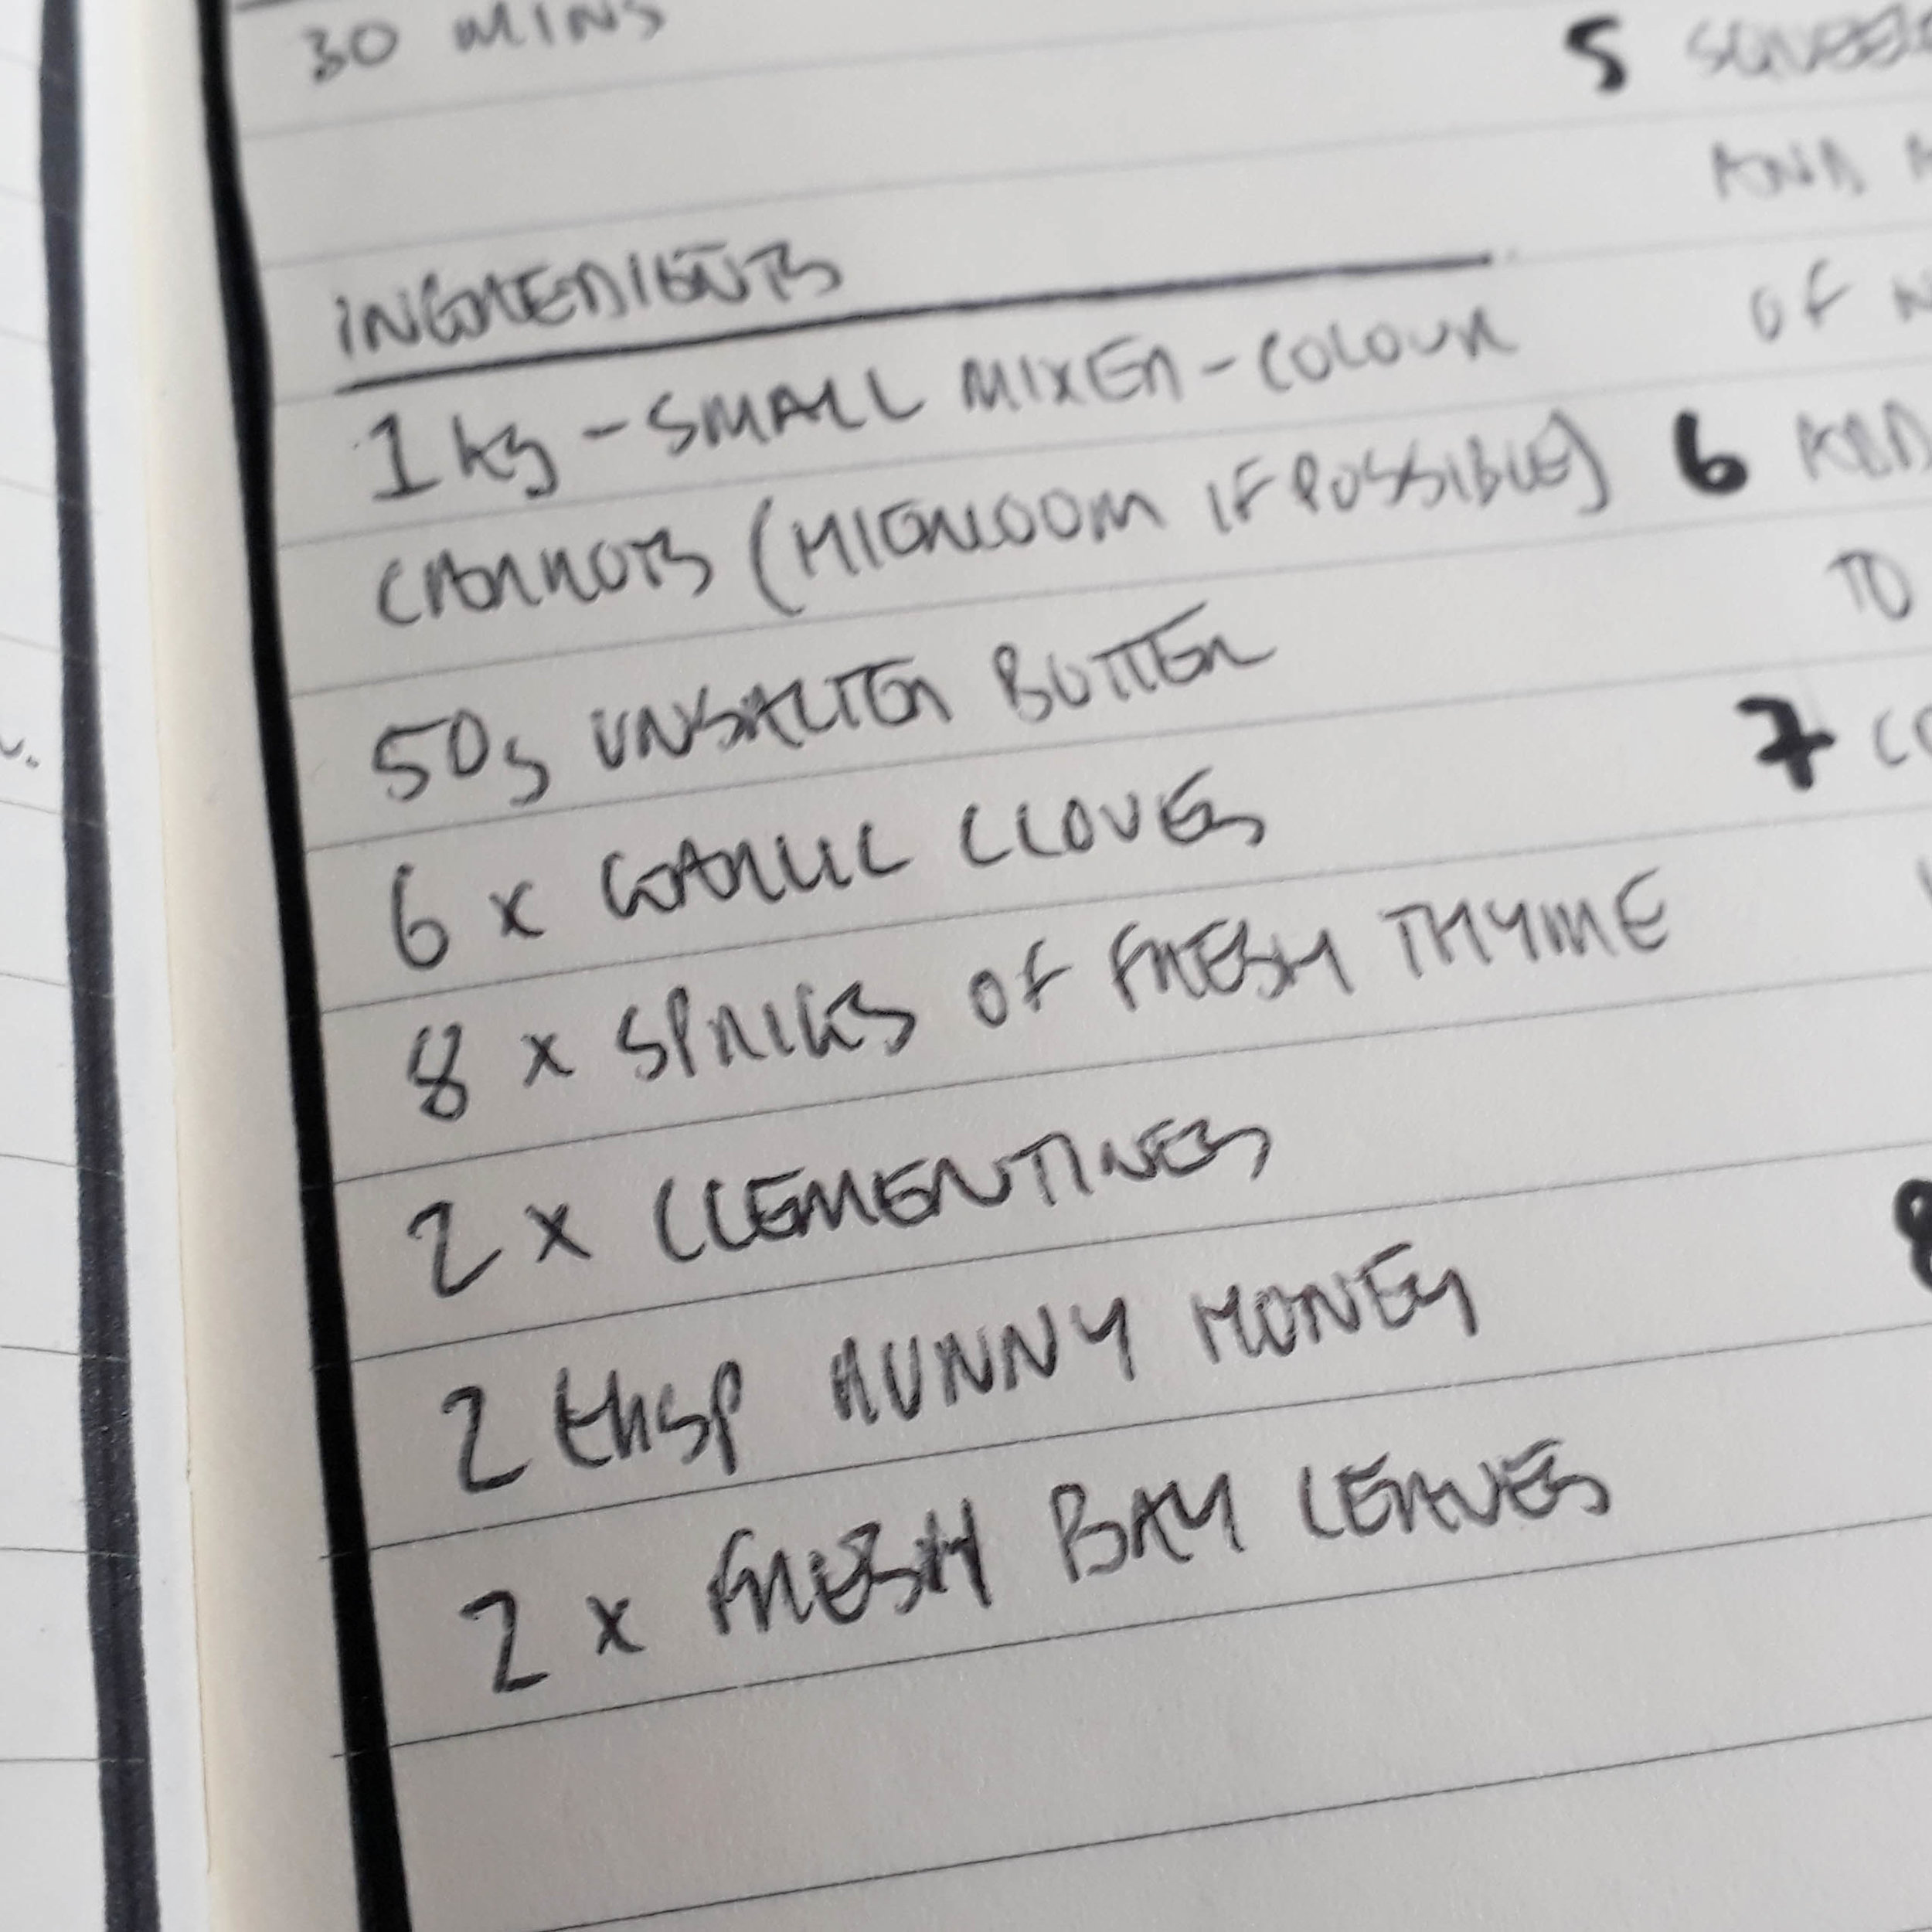 30 MINS
INGREDIENTS
1kg - SMALL MIXED - COLOUR
CARROTS (HIERLOOM IF POSSIBLE)
50g UNSALTED BUTTER
6 x GARLIC CLOVES
8 x SPRIGS OF FRESH THYME
2 x CLEMENTINES
2 tbsp RUNNY HONEY
2 x FRESH BAY LEAVES
5
AND
OF
6 ADD
TO
7
8